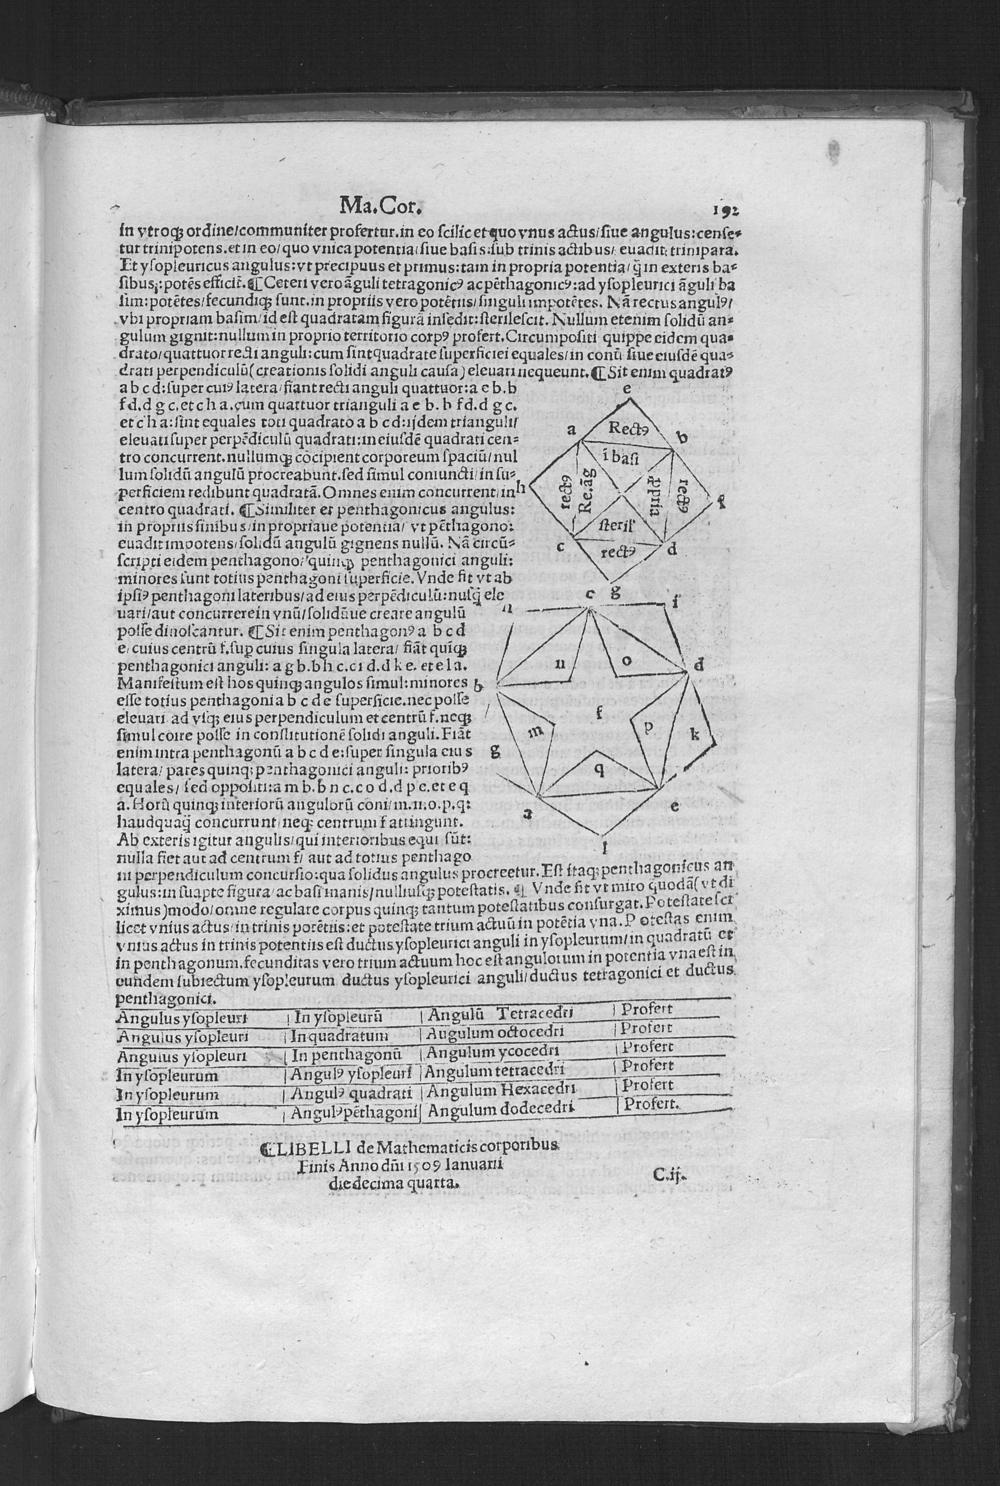 Ma.Cor.
192
in vtroqꝫ ordine/communiter profertur.in eo scilicet quo vnus actus/siue angulus:cense⸗
tur trinipotens.et in eo/quo vnica potentia/siue basis:sub trinis actibus/euadit:trinipara.
Et ysopleuricus angulus:vt precipuus et primus:tam in propria potentia/q̃ in exteris ba⸗
sibus:potēs efficit̄.¶Ceteri vero āguli tetragonicꝰ ac pēthagonicꝰ:ad ysopleurici āguli ba
sim:potētes/fecundiqꝫ sunt.in propriis vero potētiis/singuli impotētes. Nā rectus angulꝰ/
vbi propriam basim/id est quadratam figurā insedit:sterilescit. Nullum etenim solidū an⸗
gulum gignit:nullum in proprio territorio corpꝰ profert. Circumpositi quippe eidem qua⸗
drato/quattuor recti anguli:cum sint quadrate superficiei equales/in conū siue eiusdē qua⸗
drati perpendiculū(creationis solidi anguli causa)eleuari nequeunt.¶Sit enim quadratꝰ
a b c d:super cuiꝰ latera/fiant recti anguli quattuor:a e b.b
f d.d g c.et c h a.cum quattuor trianguli a e b.b f d.d g c.
et c h a:sint equales toti quadrato a b c d:ijdem trianguli/
eleuati super perpēdiculū quadrati:in eiusdē quadrati cen⸗
tro concurrent.nullumqꝫ cōcipient corporeum spaciū/nul
lum solidū angulū procreabunt.sed simul coniuncti/in su⸗
perficiem redibunt quadratā. Omnes enim concurrent:in
centro quadrati. ¶Similiter et penthagonicus angulus:
in propriis finibus/in propriaue potentia/ vt pēthagono:
euadit impotens/solidū angulū gignens nullū. Nā circū⸗
scripti eidem penthagono/quinqꝫ penthagonici anguli:
minores sunt totius penthagoni superficie. Vnde fit vt ab
ipsiꝰ penthagoni lateribus/ad eius perpēdiculū:nusq̃ ele
uari/aut concurrere in vnū/solidūue creare angulū
posse dinoscantur. ¶Sit enim penthagonꝰ a b c d
e/cuius centrū f.sup cuius singula latera/ fiāt quīqꝫ
penthagonici anguli: a g b.b h c.c i d.d k e. et e l a.
Manifestum est hos quinqꝫ angulos simul:minores
esse totius penthagonia b c d e superficie.nec posse
eleuari ad vsqꝫ eius perpendiculum et centrū f.neqꝫ
simul coire posse in constitutionē solidi anguli. Fiāt
enim intra penthagonū a b c d e:super singula eius
latera/ pares quinqꝫ penthagonici anguli: prioribꝰ
equales/ sed oppositi:a m b.b n c.c o d.d p e.et e q
a. Horū quinqꝫ interiorū angulorū coni/m.n.o.p.q:
haudquaq̃ concurrunt/neqꝫ centrum f attingunt.
Ab exteris igitur angulis/qui interioribus equi sūt:
nulla fiet aut ad centrum f/ aut ad totius penthago
ni perpendiculum concursio:qua solidus angulus procreetur. Est itaqꝫ penthagonicus an
gulus:in suapte figura/ac basi inanis/nulliusqꝫ potestatis. ¶ Vnde fit vt miro quodā(vt di
ximus)modo/omne regulare corpus quinqꝫ tantum potestatibus consurgat. Potestate sci
licet vnius actus/in trinis potētiis:et potestate trium actuū in potētia vna. Potestas enim
vnius actus in trinis potentiis est ductus ysopleurici anguli in ysopleurum/in quadratū et
in penthagonum.fecunditas vero trium actuum hoc est angulorum in potentia vna est in
eundem subiectum ysopleurum ductus ysopleurici anguli/ductus tetragonici et ductus
penthagonici.
e
a Rectꝰ b
ī basi
h rectꝰ Re.āg ꝓpria rectꝰ f
steril'
c rectꝰ d
g
h c i
n o d
b f
m p k
g q
a e
l
Angulus ysopleuri | In ysopleurū | Angulū Tetracedri | Profert
Angulus ysopleuri | In quadratum | Angulum octocedri | Profert
Angulus ysopleuri | In penthagonū | Angulum ycocedri | Profert
In ysopleurum | Angulꝰ ysopleuri | Angulum tetracedri | Profert
In ysopleurum | Angulꝰ quadrati | Angulum Hexacedri | Profert
In ysopleurum | Angulꝰ pēthagoni | Angulum dodecedri | Profert.
¶LIBELLI de Mathematicis corporibus
Finis Anno dn̄i 1509 Ianuarii
die decima quarta.
C.ij.